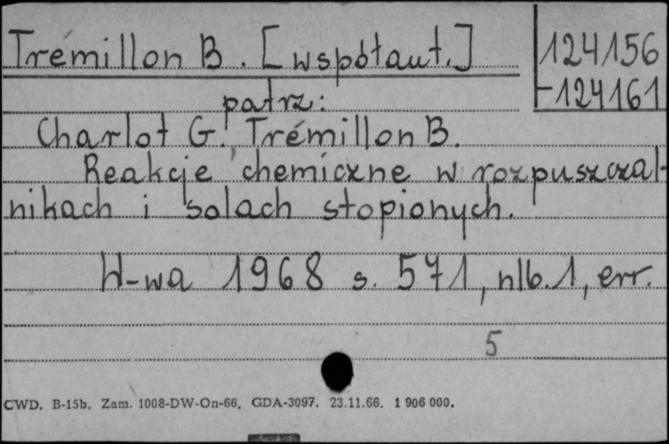 Trémillon B. [współaut.]
124156
-124161
patrz:
Charlot G., Trémillon B.
Reakcje chemiczne w rozpuszczal-
nikach i solach stopionych.
W-wa 1968 s. 571, nlb. 1, err.
5
CWD. B-15b. Zam. 1008-DW-On-66. GDA-3097. 23.11.66. 1 906 000.